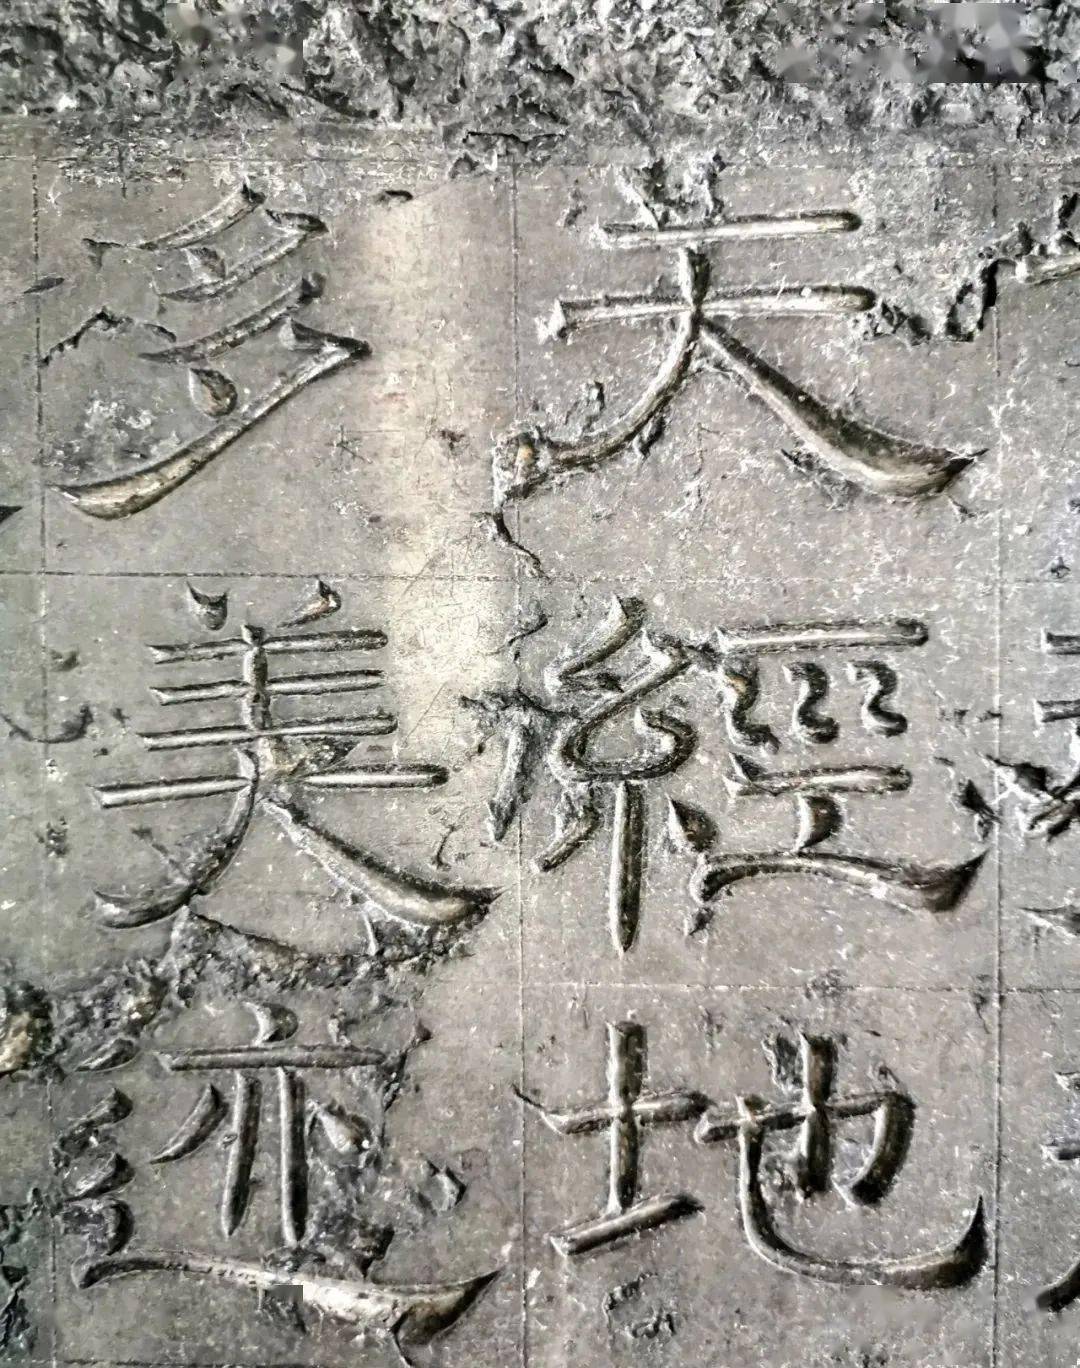 天經地
多美迹